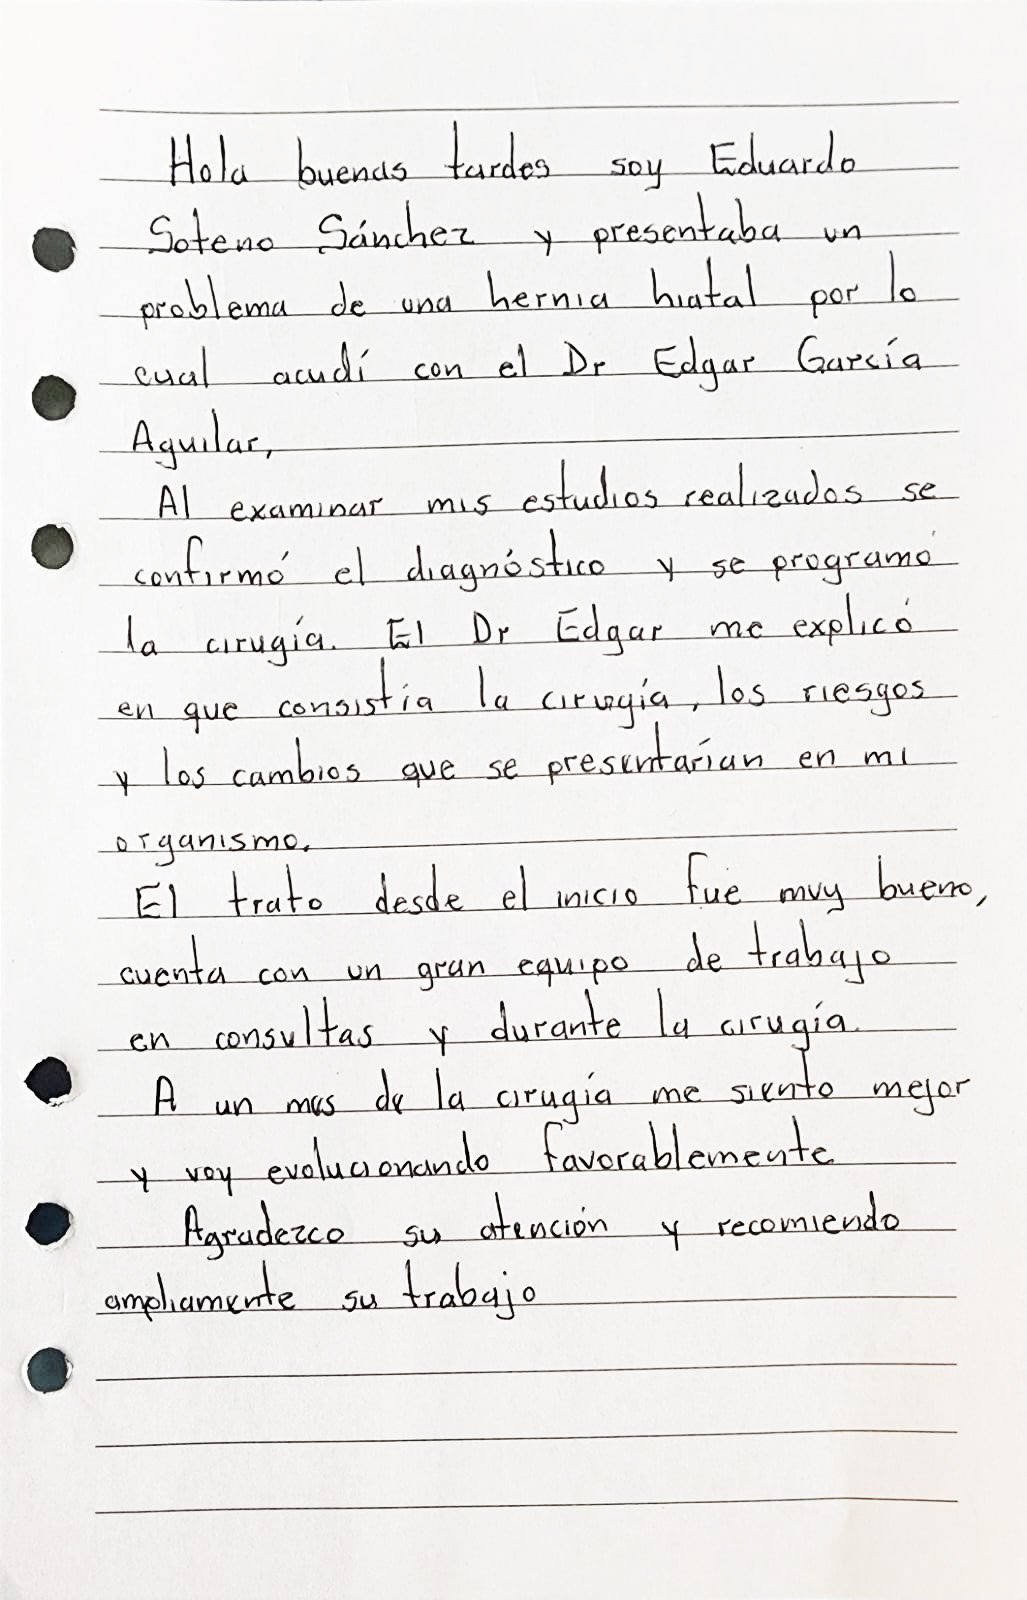 Hola buenas tardes soy Eduardo
Soteno Sánchez y presentaba un
problema de una hernia hiatal por lo
cual acudí con el Dr Edgar García
Aguilar,
Al examinar mis estudios realizados se
confirmó el diagnóstico y se programó
la cirugía. El Dr Edgar me explicó
en que consistía la cirugía, los riesgos
y los cambios que se presentarían en mi
organismo.
El trato desde el inicio fue muy bueno,
cuenta con un gran equipo de trabajo
en consultas y durante la cirugía.
A un mes de la cirugía me siento mejor
y voy evolucionando favorablemente
Agradezco su atención y recomiendo
ampliamente su trabajo